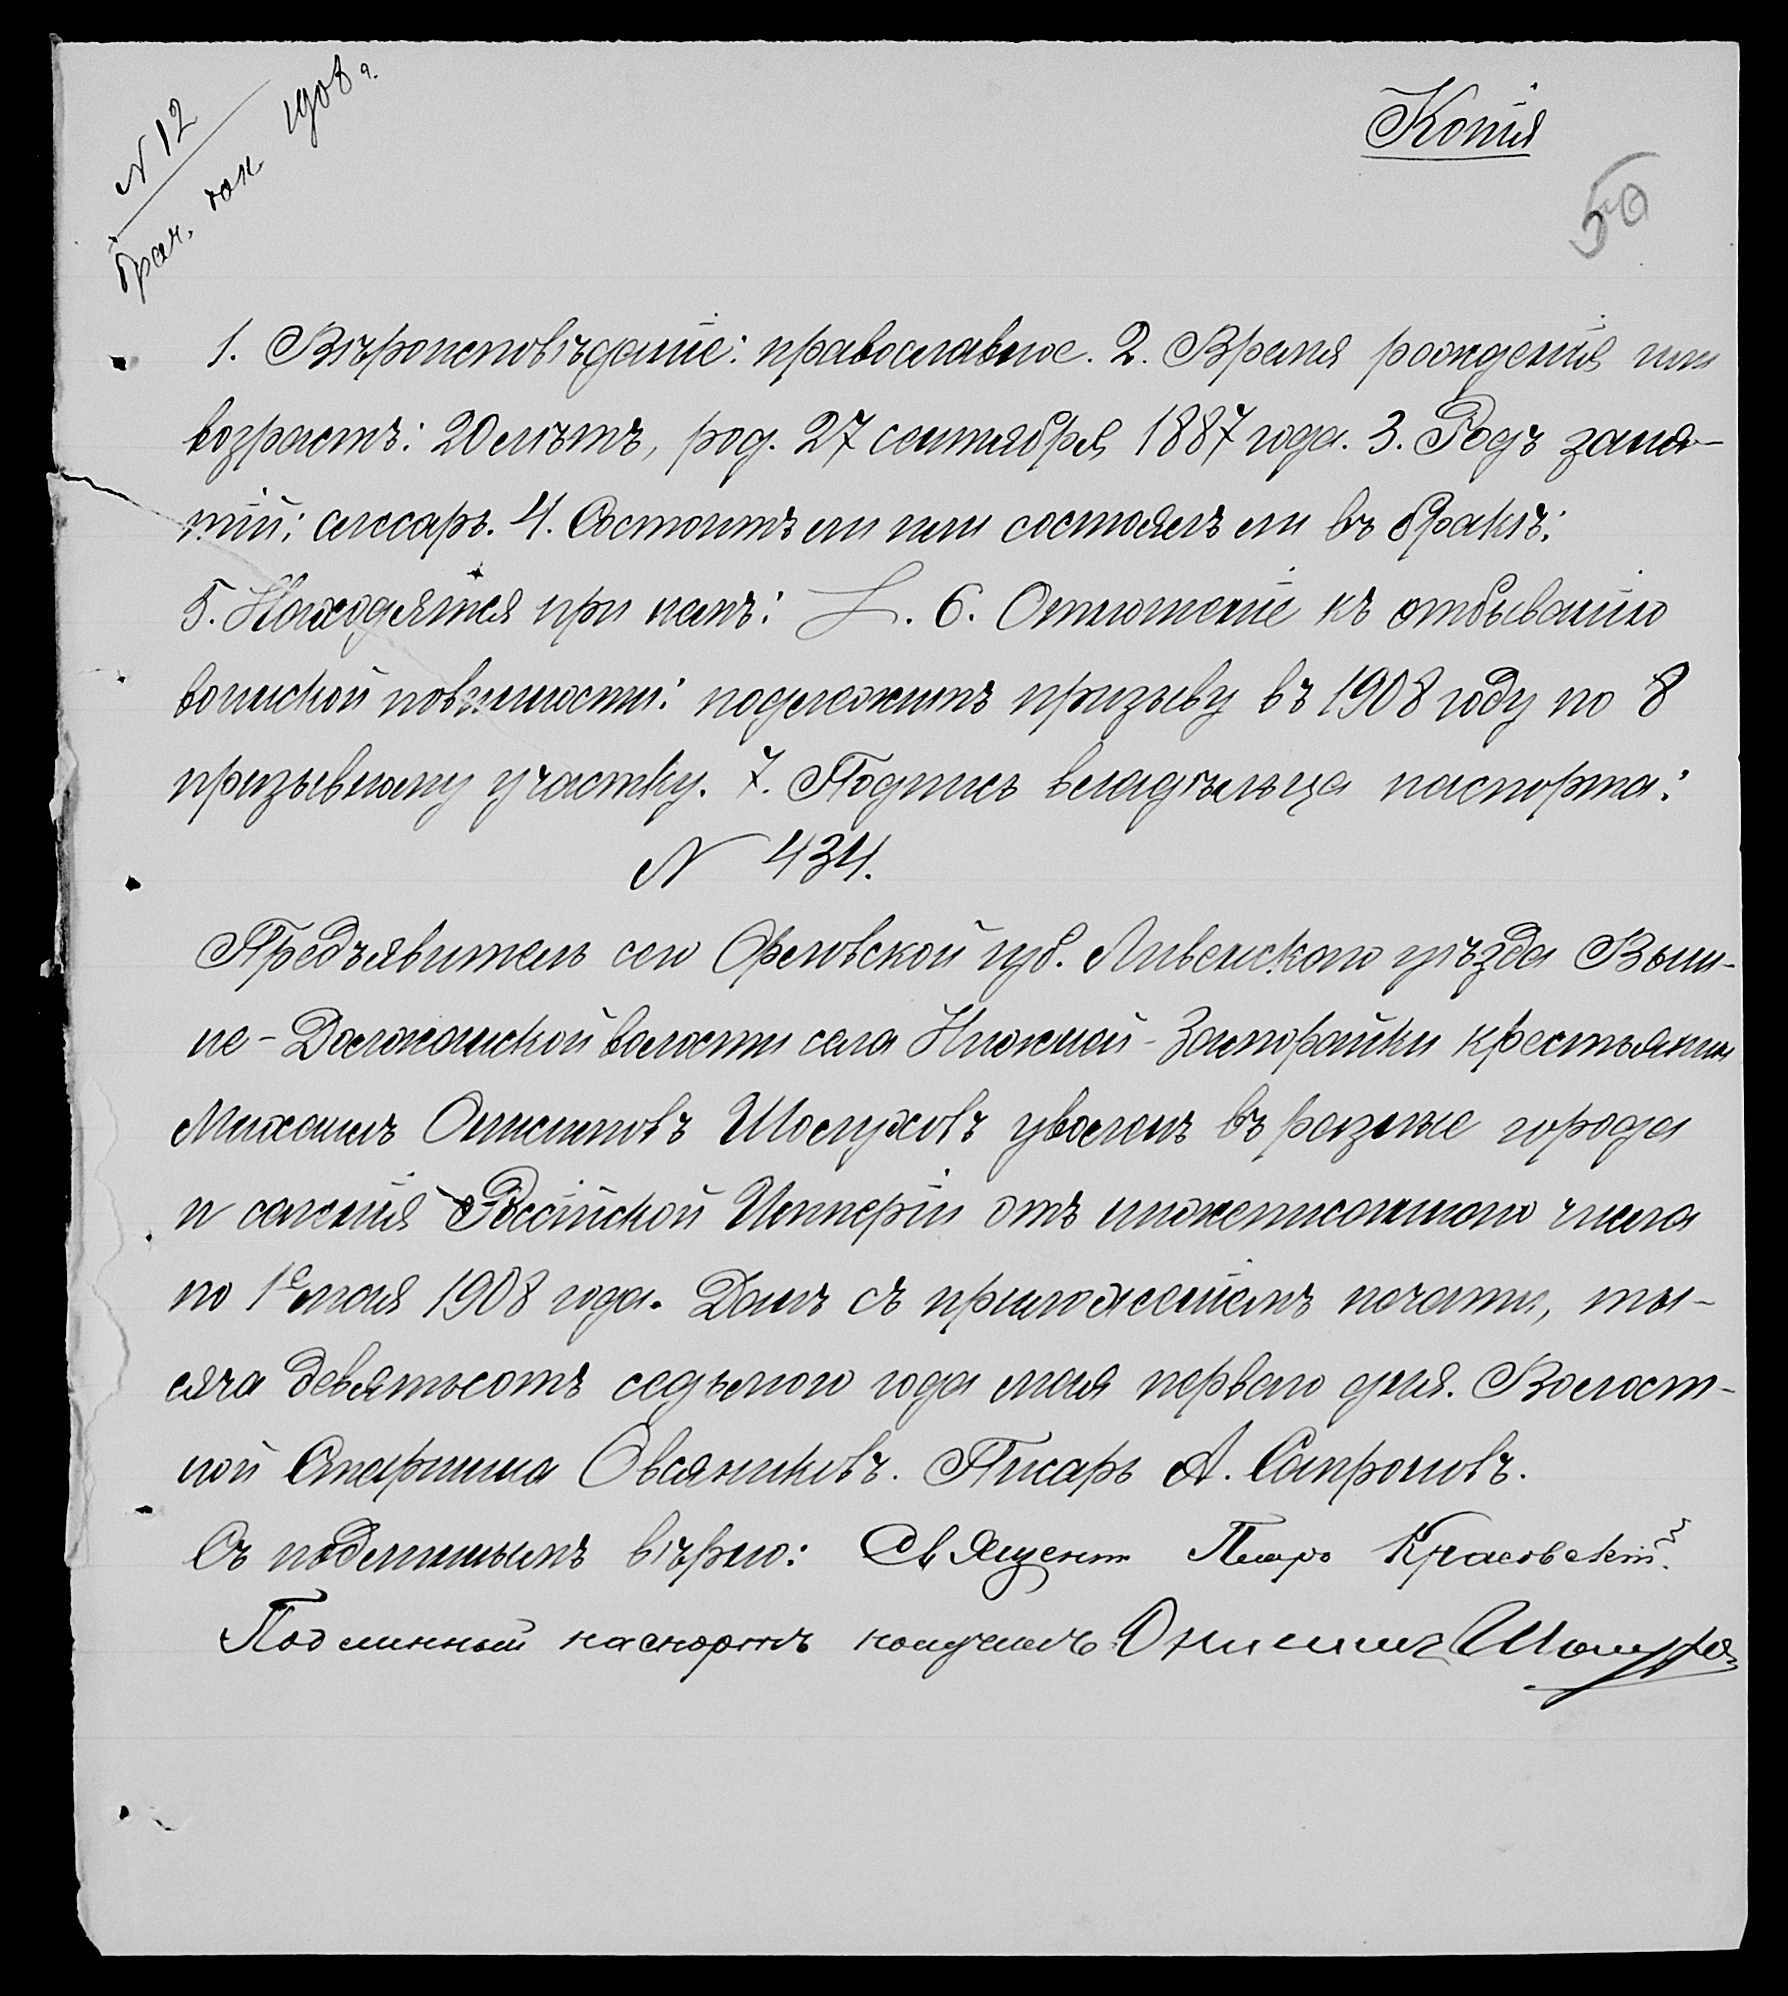 N 12
брач. док. 1908 г.
Копія
50
1. Вѣроисповѣданіе: православное. 2. Время рожденія или
возрастъ: 20 лѣтъ, род. 27 сентября 1887 года. 3. Родъ заня-
тій: слесарь. 4. Состоитъ ли или состоялъ ли въ бракѣ:
5. Находятся при немъ: . 6. Отношеніе къ отбыванію
воинской повинности: подлежитъ призыву въ 1908 году по 8
призывному участку. 7. Подпись владѣльца паспорта:
N 434.
Предъявитель сего Орловской губ. Ливенскаго уѣзда Выш-
не-Должанской волости села Нижней-Замарайки крестьянин
Михаилъ Онисимовъ Шалуховъ уволенъ въ разные города
и селенія Россійской Имперіи отъ нижеписаннаго числа
по 1е мая 1908 года. Данъ съ приложеніемъ печати, ты-
сяча девятьсотъ седьмого года мая перваго дня. Волост-
ной Старшина Овсянниковъ. Писарь А. Сапроновъ.
Съ подлиннымъ вѣрно: Священн Петръ Красовскій.
Подлинный паспортъ получилъ Онисимъ